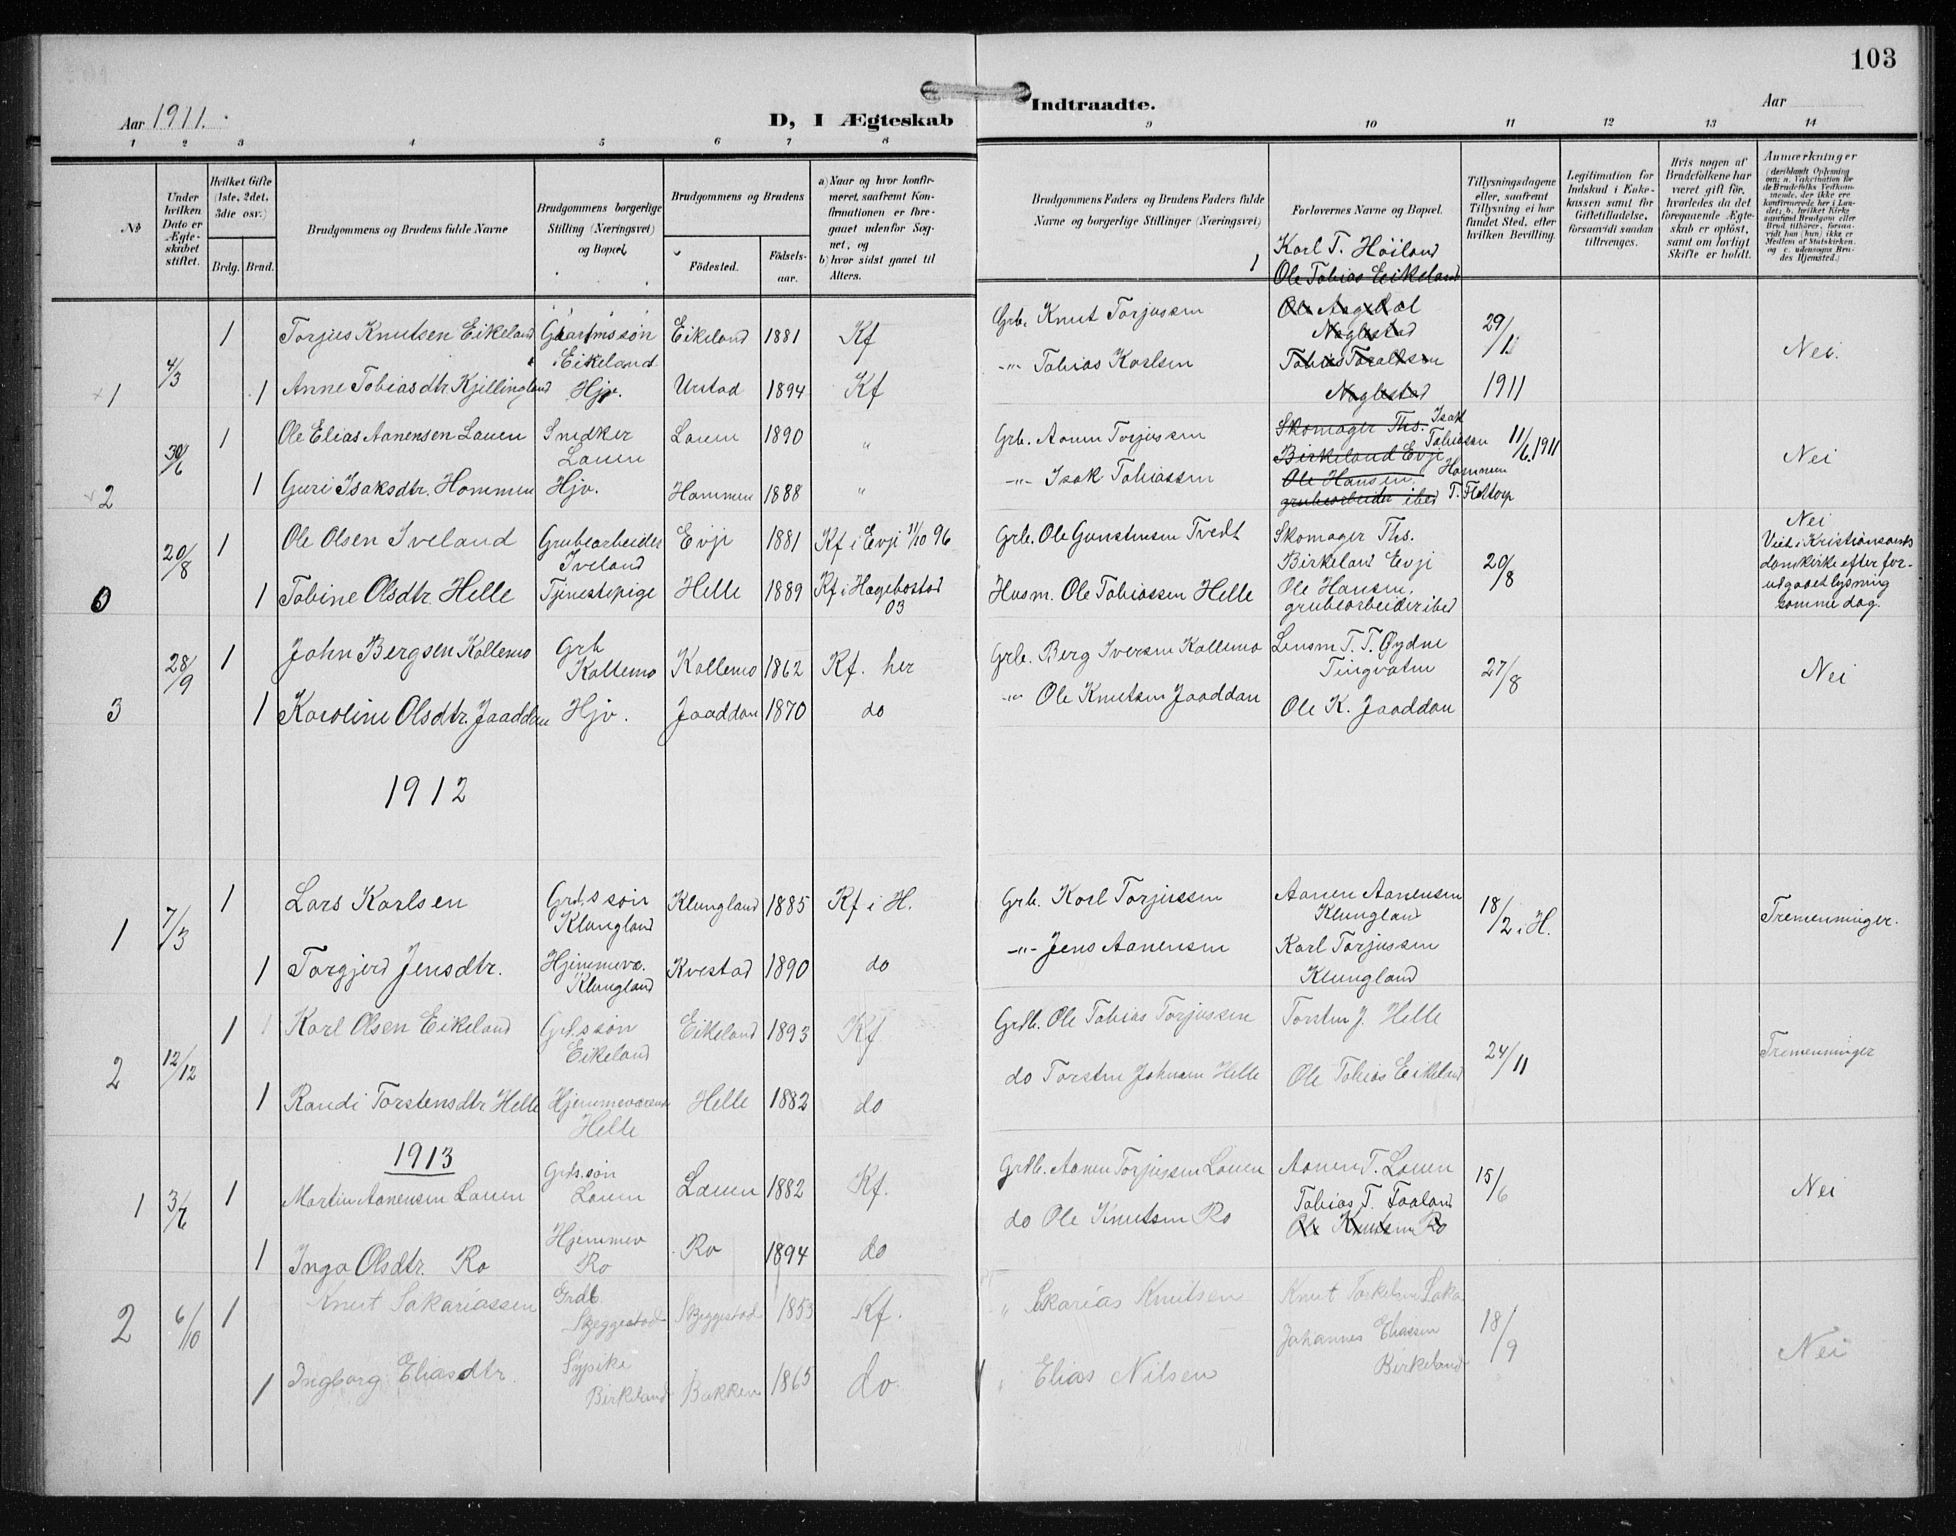 103
Aar 1911.
D, I Ægteskab
Indtraadte.
Aar
1 2 3 4 5 6 7 8 9 10 11 12 13 14
No
Under hvilken Dato er Ægteskabet stiftet.
Hvilket Gifte (1ste, 2det, 3die osv.)
Brdg. Brud.
Brudgommens og Brudens fulde Navne
Brudgommens borgerlige Stilling (Næringsvei) og Bopæl.
Brudgommens og Brudens
Födested.
Födselsaar.
a) Naar og hvor konfirmeret, saafremt Konfirmationen er foregaaet udenfor Sognet, og
b) hvor sidst gaaet til Alters.
Brudgommens Faders og Brudens Faders fulde Navne og borgerlige Stillinger (Næringsvei)
Forlovernes Navne og Bopæl.
Tillysningsdagene eller, saafremt Tillysning ei har fundet Sted, efter hvilken Bevilling.
Legitimation for Indskud i Enkekassen samt for Giftetilladelse, forsaavidt saadan tiltrænges.
Hvis nogen af Brudefolkene har været gift för, hvorledes da det foregaaende Ægteskab er oplöst, samt om lovligt Skifte er holdt.
Anmærkninger
(deriblandt Oplysning om: a. Vakcination for de Brudefolks Vedkommende, der ikke ere konfirmerede her i Landet; b. hvilket Kirkesamfund Brudgom eller Brud tilhörer, forsaavidt han (hun) ikke er Medlem af Statskirken, og c. udensogns Brudes Hjemsted.)
1 Karl T. Høiland
Ole Tobias Eikeland
1 4/3
1 Torjus Knutsen Eikeland Gaarmssøn Eikeland Eikeland 1881 Kf
Grb. Knut Torjussen
Naglestad
29/1 1911
Nei.
1 Anne Tobiasdtr. Kjellingland Hjv. Unstad 1894 Kf
-"- Tobias Karlsen
Naglestad
2 30/6
1 Ole Elias Aanensen Lauen Snedker Lauen Lauen 1890 "
Grb. Aanen Torjussen
Skomager Ths. Isak Tobiassen
Birkeland Evje Hommen
11/6 1911
Nei
1 Guri Isaksdtr. Hommen Hjv. Hommen 1888 "
-"- Isak Tobiassen
Ole Hansen,
grubearbeider ibid T. Flottorp
0 20/8
1 Ole Olsen Iveland Grubearbeider Iveland Evje 1881 Kf i Evje 11/10 96
Grb. Ole Gunstensen Tvedt
Skomager Ths. Birkeland Evje
20/8
Nei
Viet i Kristiansands domkirke efter forudgaaet lysning samme dag.
1 Tobine Olsdtr. Helle Tjenestepige Helle 1889 Kf i Hægebostad 03
Husm. Ole Tobiassen Helle
Ole Hansen, grubearbeider ibid
3 28/9
1 John Bergsen Kollemo Grb Kollemo Kollemo 1862 Kf. her
Grb. Berg Iversen Kollemo
Lensm T. T. Øydne Tingvatn
27/8
Nei
1 Karoline Olsdtr. Jaaddan Hjv. Jaaddan 1870 do
-"- Ole Knutsen Jaaddan
Ole K. Jaaddan
1912
1 7/3
1 Lars Karlsen Grds søn Klungland Klungland 1885 Kf i H.
Grb. Karl Torjussen
Aanen Aanensen Klungland
18/2 i H.
Tremenninger.
1 Torgjerd Jensdtr. Hjemmevæ. Klungland Kvestad 1890 do
-"- Jens Aanensen
Karl Torjussen Klungland
2 12/12
1 Karl Olsen Eikeland Grd.søn Eikeland Eikeland 1893 Kf
Grdb. Ole Tobias Torjussen
Torsten J. Helle
24/11
Tremenninger
1 Randi Torstensdtr Helle Hjemmeværende Helle Helle 1882 do
do Torsten Johnsen Helle
Ole Tobias Eikeland
1913
1 3/7
1 Martin Aanensen Lauen Grds.søn Lauen Lauen 1882 Kf.
Grdb. Aanen Torjussen Lauen
Aanen T. Lauen
15/6
Nei
1 Inga Olsdtr. Ro Hjemmev Ro Ro 1894 do
do Ole Knutsen Ro
Tobias T. Faaland
Ole Knutsen Ro
2 6/10
1 Knut Sakariassen Grdb. Skeggestad Skeggestad 1853 Kf.
" Sakarias Knutsen
18/9
Nei
1 Ingborg Eliasdtr. Sypike Birkeland Bakken 1865 do.
" Elias Nilsen
Johannes Eliassen Birkeland